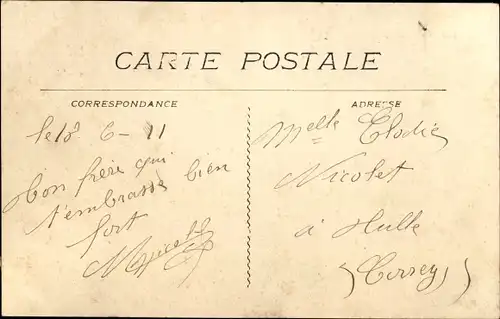 CARTE POSTALE
CORRESPONDANCE
le 18 6 - 11
Ton frère qui
t'embrasse bien
fort
Nicolet
ADRESSE
Melle Elodie
Nicolet
à Hulle